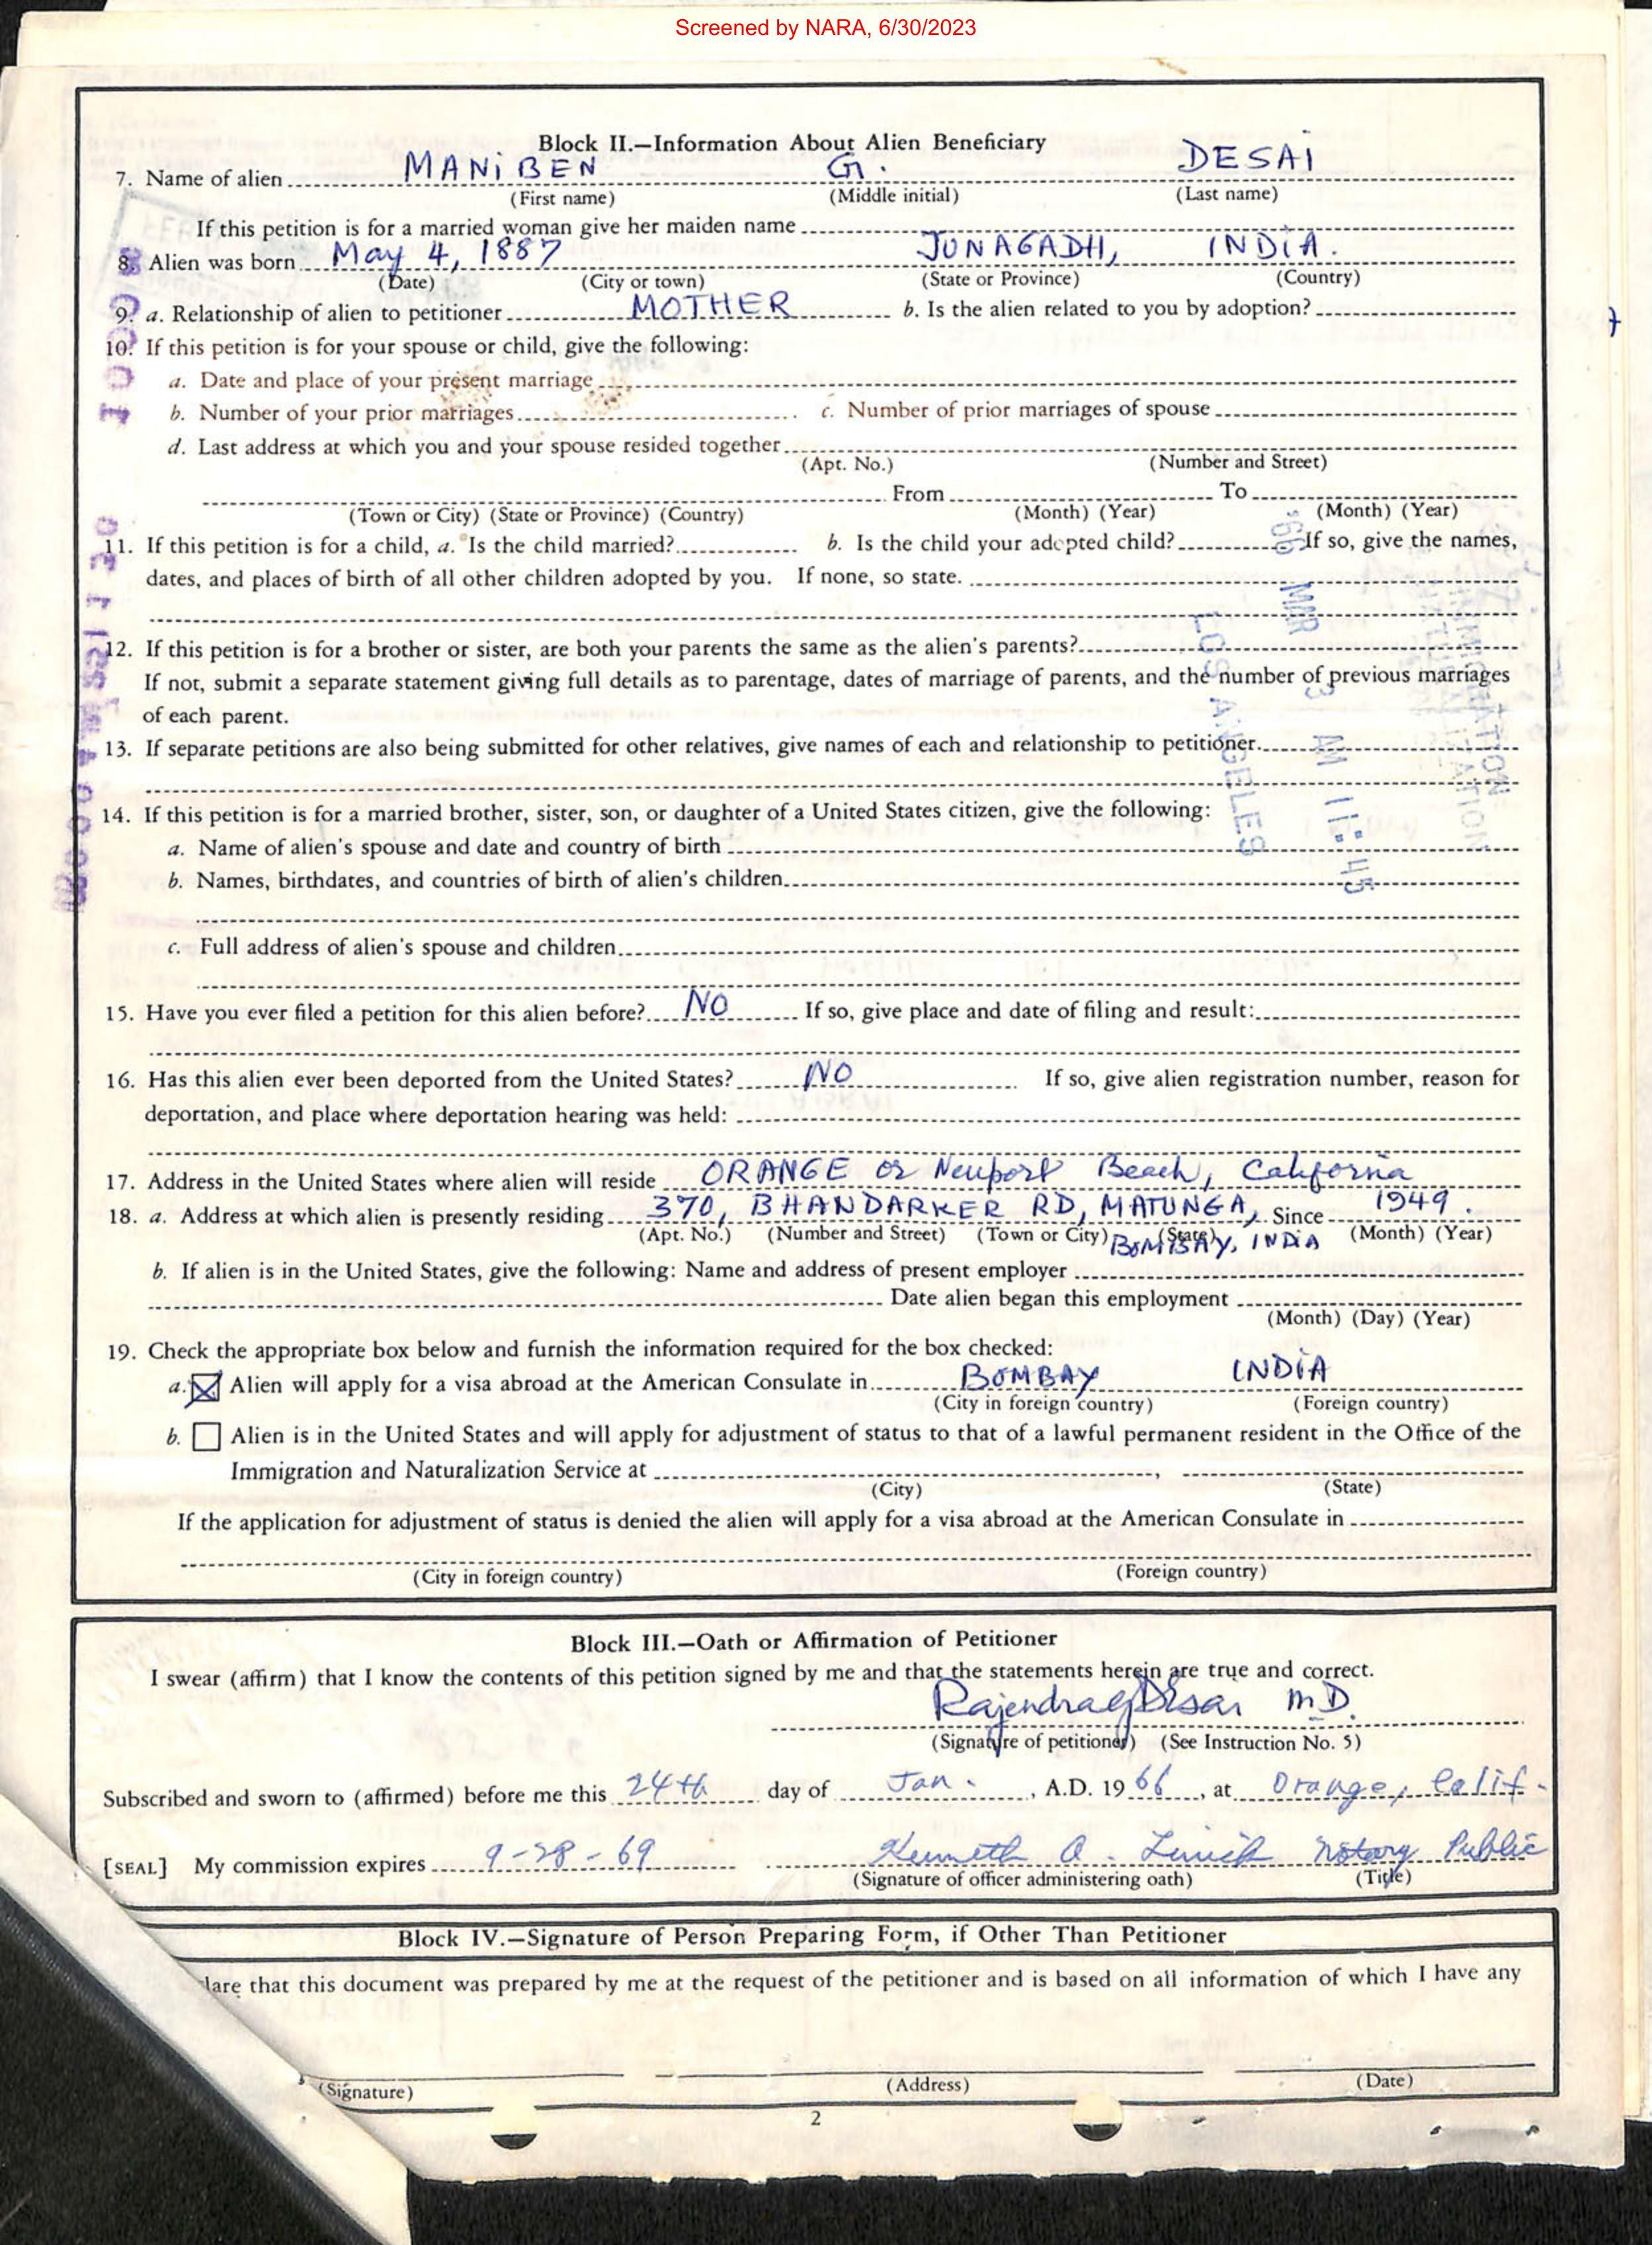 Screened by NARA, 6/30/2023
Block II.—Information About Alien Beneficiary
7. Name of alien MANIBEN G. DESAI
(First name) (Middle initial) (Last name)
If this petition is for a married woman give her maiden name
8. Alien was born May 4, 1887 JUNAGADH, INDIA.
(Date) (City or town) (State or Province) (Country)
9. a. Relationship of alien to petitioner MOTHER b. Is the alien related to you by adoption?
10. If this petition is for your spouse or child, give the following:
a. Date and place of your present marriage
b. Number of your prior marriages c. Number of prior marriages of spouse
d. Last address at which you and your spouse resided together
(Apt. No.) (Number and Street)
From To
(Town or City) (State or Province) (Country) (Month) (Year) (Month) (Year)
11. If this petition is for a child, a. Is the child married? b. Is the child your adopted child? If so, give the names,
dates, and places of birth of all other children adopted by you. If none, so state.
12. If this petition is for a brother or sister, are both your parents the same as the alien's parents?
If not, submit a separate statement giving full details as to parentage, dates of marriage of parents, and the number of previous marriages
of each parent.
13. If separate petitions are also being submitted for other relatives, give names of each and relationship to petitioner.
14. If this petition is for a married brother, sister, son, or daughter of a United States citizen, give the following:
a. Name of alien's spouse and date and country of birth
b. Names, birthdates, and countries of birth of alien's children
c. Full address of alien's spouse and children
'66 MAR 3 AM 11:45
LOS ANGELES
IMMIGRATION
15. Have you ever filed a petition for this alien before? NO If so, give place and date of filing and result:
16. Has this alien ever been deported from the United States? NO If so, give alien registration number, reason for
deportation, and place where deportation hearing was held:
17. Address in the United States where alien will reside ORANGE or Newport Beach, California
18. a. Address at which alien is presently residing 370, BHANDARKER RD, MATUNGA, Since 1949.
(Apt. No.) (Number and Street) (Town or City) (State) BOMBAY, INDIA (Month) (Year)
b. If alien is in the United States, give the following: Name and address of present employer
Date alien began this employment
(Month) (Day) (Year)
19. Check the appropriate box below and furnish the information required for the box checked:
a. Alien will apply for a visa abroad at the American Consulate in BOMBAY INDIA
(City in foreign country) (Foreign country)
b. Alien is in the United States and will apply for adjustment of status to that of a lawful permanent resident in the Office of the
Immigration and Naturalization Service at ,
(City) (State)
If the application for adjustment of status is denied the alien will apply for a visa abroad at the American Consulate in
(City in foreign country) (Foreign country)
Block III.—Oath or Affirmation of Petitioner
I swear (affirm) that I know the contents of this petition signed by me and that the statements herein are true and correct.
Rajendra G Desai M.D.
(Signature of petitioner) (See Instruction No. 5)
Subscribed and sworn to (affirmed) before me this 24th day of Jan. , A.D. 1966, at Orange, Calif.
[SEAL] My commission expires 9-28-69 Kenneth A. Notary Public
(Signature of officer administering oath) (Title)
Block IV.—Signature of Person Preparing Form, if Other Than Petitioner
lare that this document was prepared by me at the request of the petitioner and is based on all information of which I have any
(Signature) (Address) (Date)
2